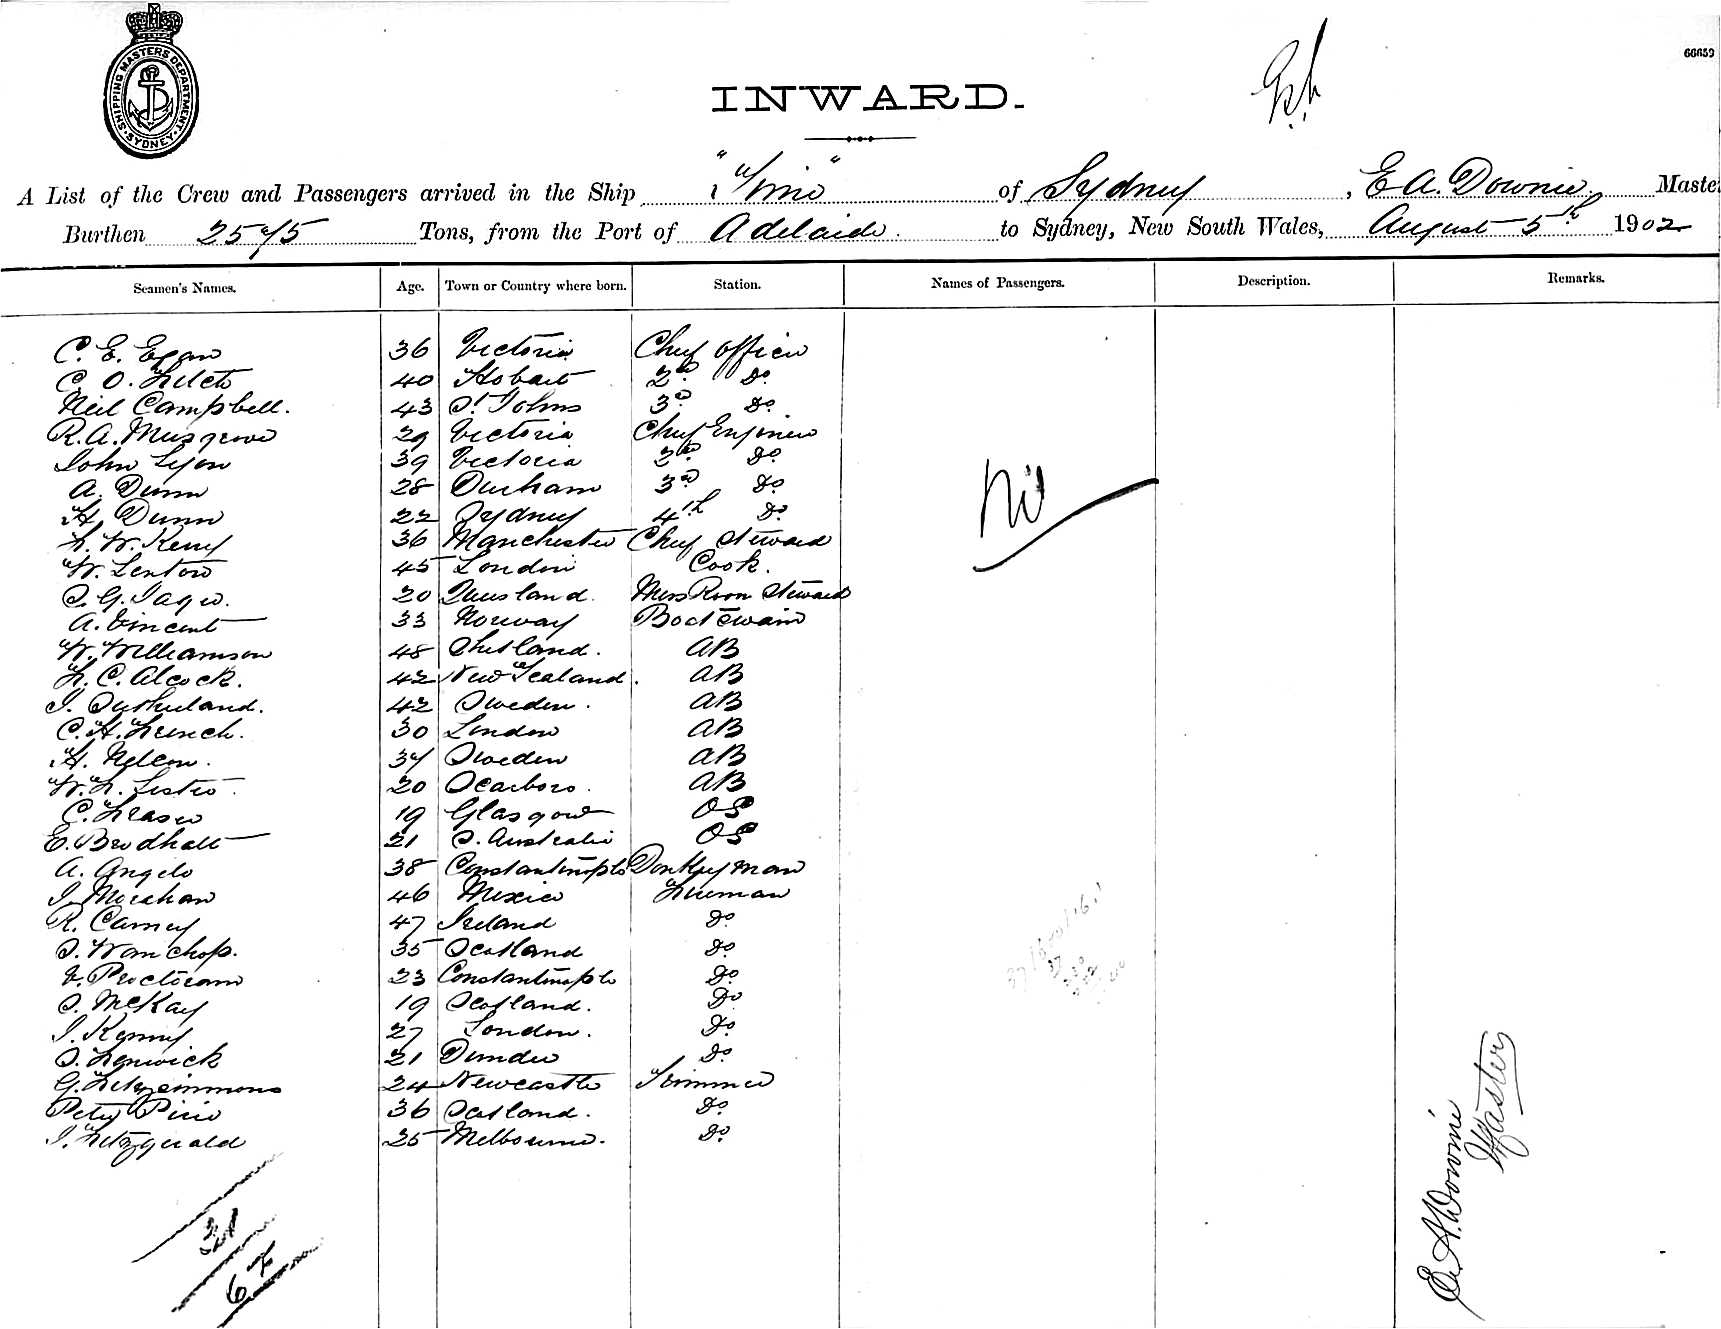 SHIPPING MASTERS DEPARTMENT
SYDNEY
66659
INWARD.
A List of the Crew and Passengers arrived in the Ship "Time" of Sydney, E A. Downie. Maste
Burthen 2575 Tons, from the Port of Adelaide. to Sydney, New South Wales, August 5th 1902
Seamen's Names. Age. Town or Country where born. Station. Names of Passengers. Description. Remarks.
C. E. Egan 36 Victoria Chief Officer
C. O. 40 Hobart 2nd Do
Neil Campbell. 43 St Johns 3d Do
R. A. Musgrove 29 Victoria Chief Engineer
John Lyon 39 Victoria 2nd Do
A. Dunn 28 Durham 3d Do
H. Dunn 22 Sydney 4th Do
F. W. Kerry 36 Manchester Chief Steward
W. Lenton 45 London Cook.
20 Queensland. Mess Room Steward
A. Vincent 33 Norway Boatswain
W. Williamson 48 Shetland. AB
F. C. Alcock. 42 New Zealand. AB
J. Sutherland. 42 Sweden. AB
C. H. French. 30 London AB
H. Nelson. 34 Sweden AB
W. F. Lister. 20 Scarboro. AB
C. Fraser 19 Glasgow OS
E. Brodhatt 21 S. Australia OS
A. Angelo 38 Constantinople Donkeyman
J. 46 Mexico Fireman
R. Carney 47 Ireland Do
S. Wanchop. 35 Scotland Do
23 Constantinople Do
S. McKay 19 Scotland. Do
J. Kenny 27 London. Do
S. Fenwick 21 Dundee Do
G. Fitzsimmons 24 Newcastle Trimmer
Peter Pirie 36 Scotland. Do
J. Fitzgerald 25 Melbourne. Do
Nil
31
E. A. Downie
Master